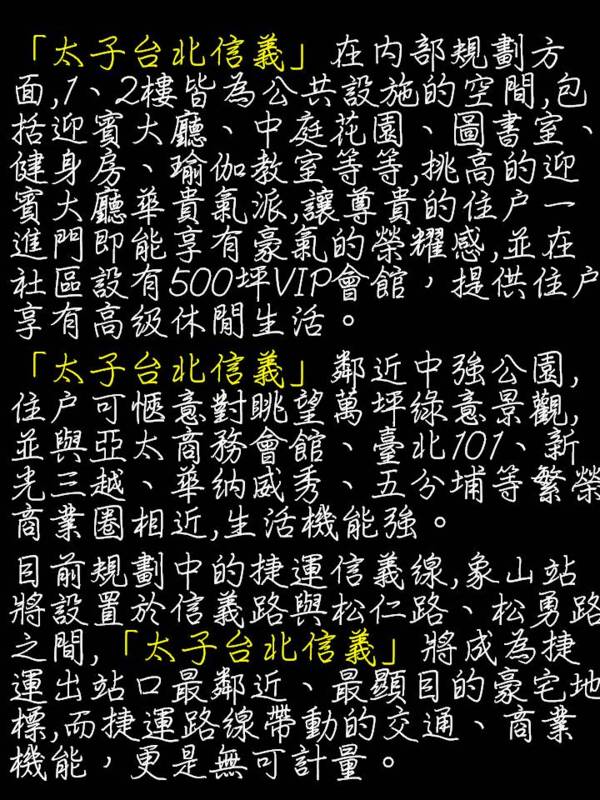 「太子台北信義」在內部規劃方
面,1、2樓皆為公共設施的空間,包
括迎賓大廳、中庭花園、圖書室、
健身房、瑜伽教室等等,挑高的迎
賓大廳華貴氣派,讓尊貴的住戶一
進門即能享有豪氣的榮耀感,並在
社區設有500坪VIP會館，提供住戶
享有高級休閒生活。
「太子台北信義」鄰近中強公園,
住戶可愜意對眺望萬坪綠意景觀,
並與亞太商務會館、臺北101、新
光三越、華納威秀、五分埔等繁榮
商業圈相近,生活機能強。
目前規劃中的捷運信義線,象山站
將設置於信義路與松仁路、松勇路
之間,「太子台北信義」將成為捷
運出站口最鄰近、最顯目的豪宅地
標,而捷運路線帶動的交通、商業
機能，更是無可計量。